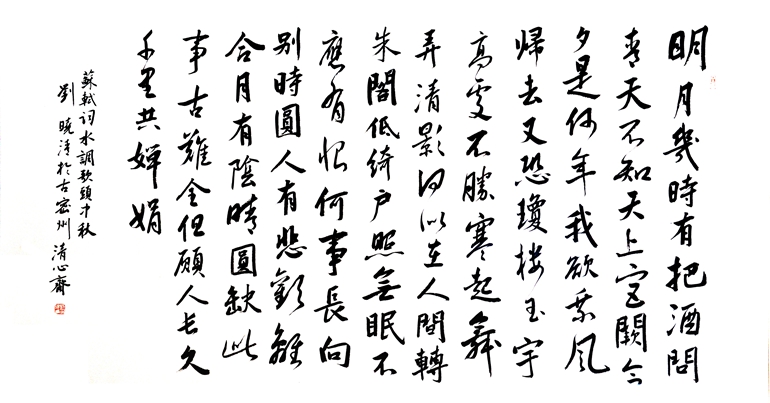 明月幾時有把酒問
青天不知天上宮闕今
夕是何年我欲乘風
歸去又恐瓊樓玉宇
高處不勝寒起舞
弄清影何似在人間轉
朱閣低綺戶照無眠不
應有恨何事長向
別時圓人有悲歡離
合月有陰晴圓缺此
事古難全但願人長久
千里共嬋娟
蘇軾詞水調歌頭中秋
劉曉於古密州清心齋